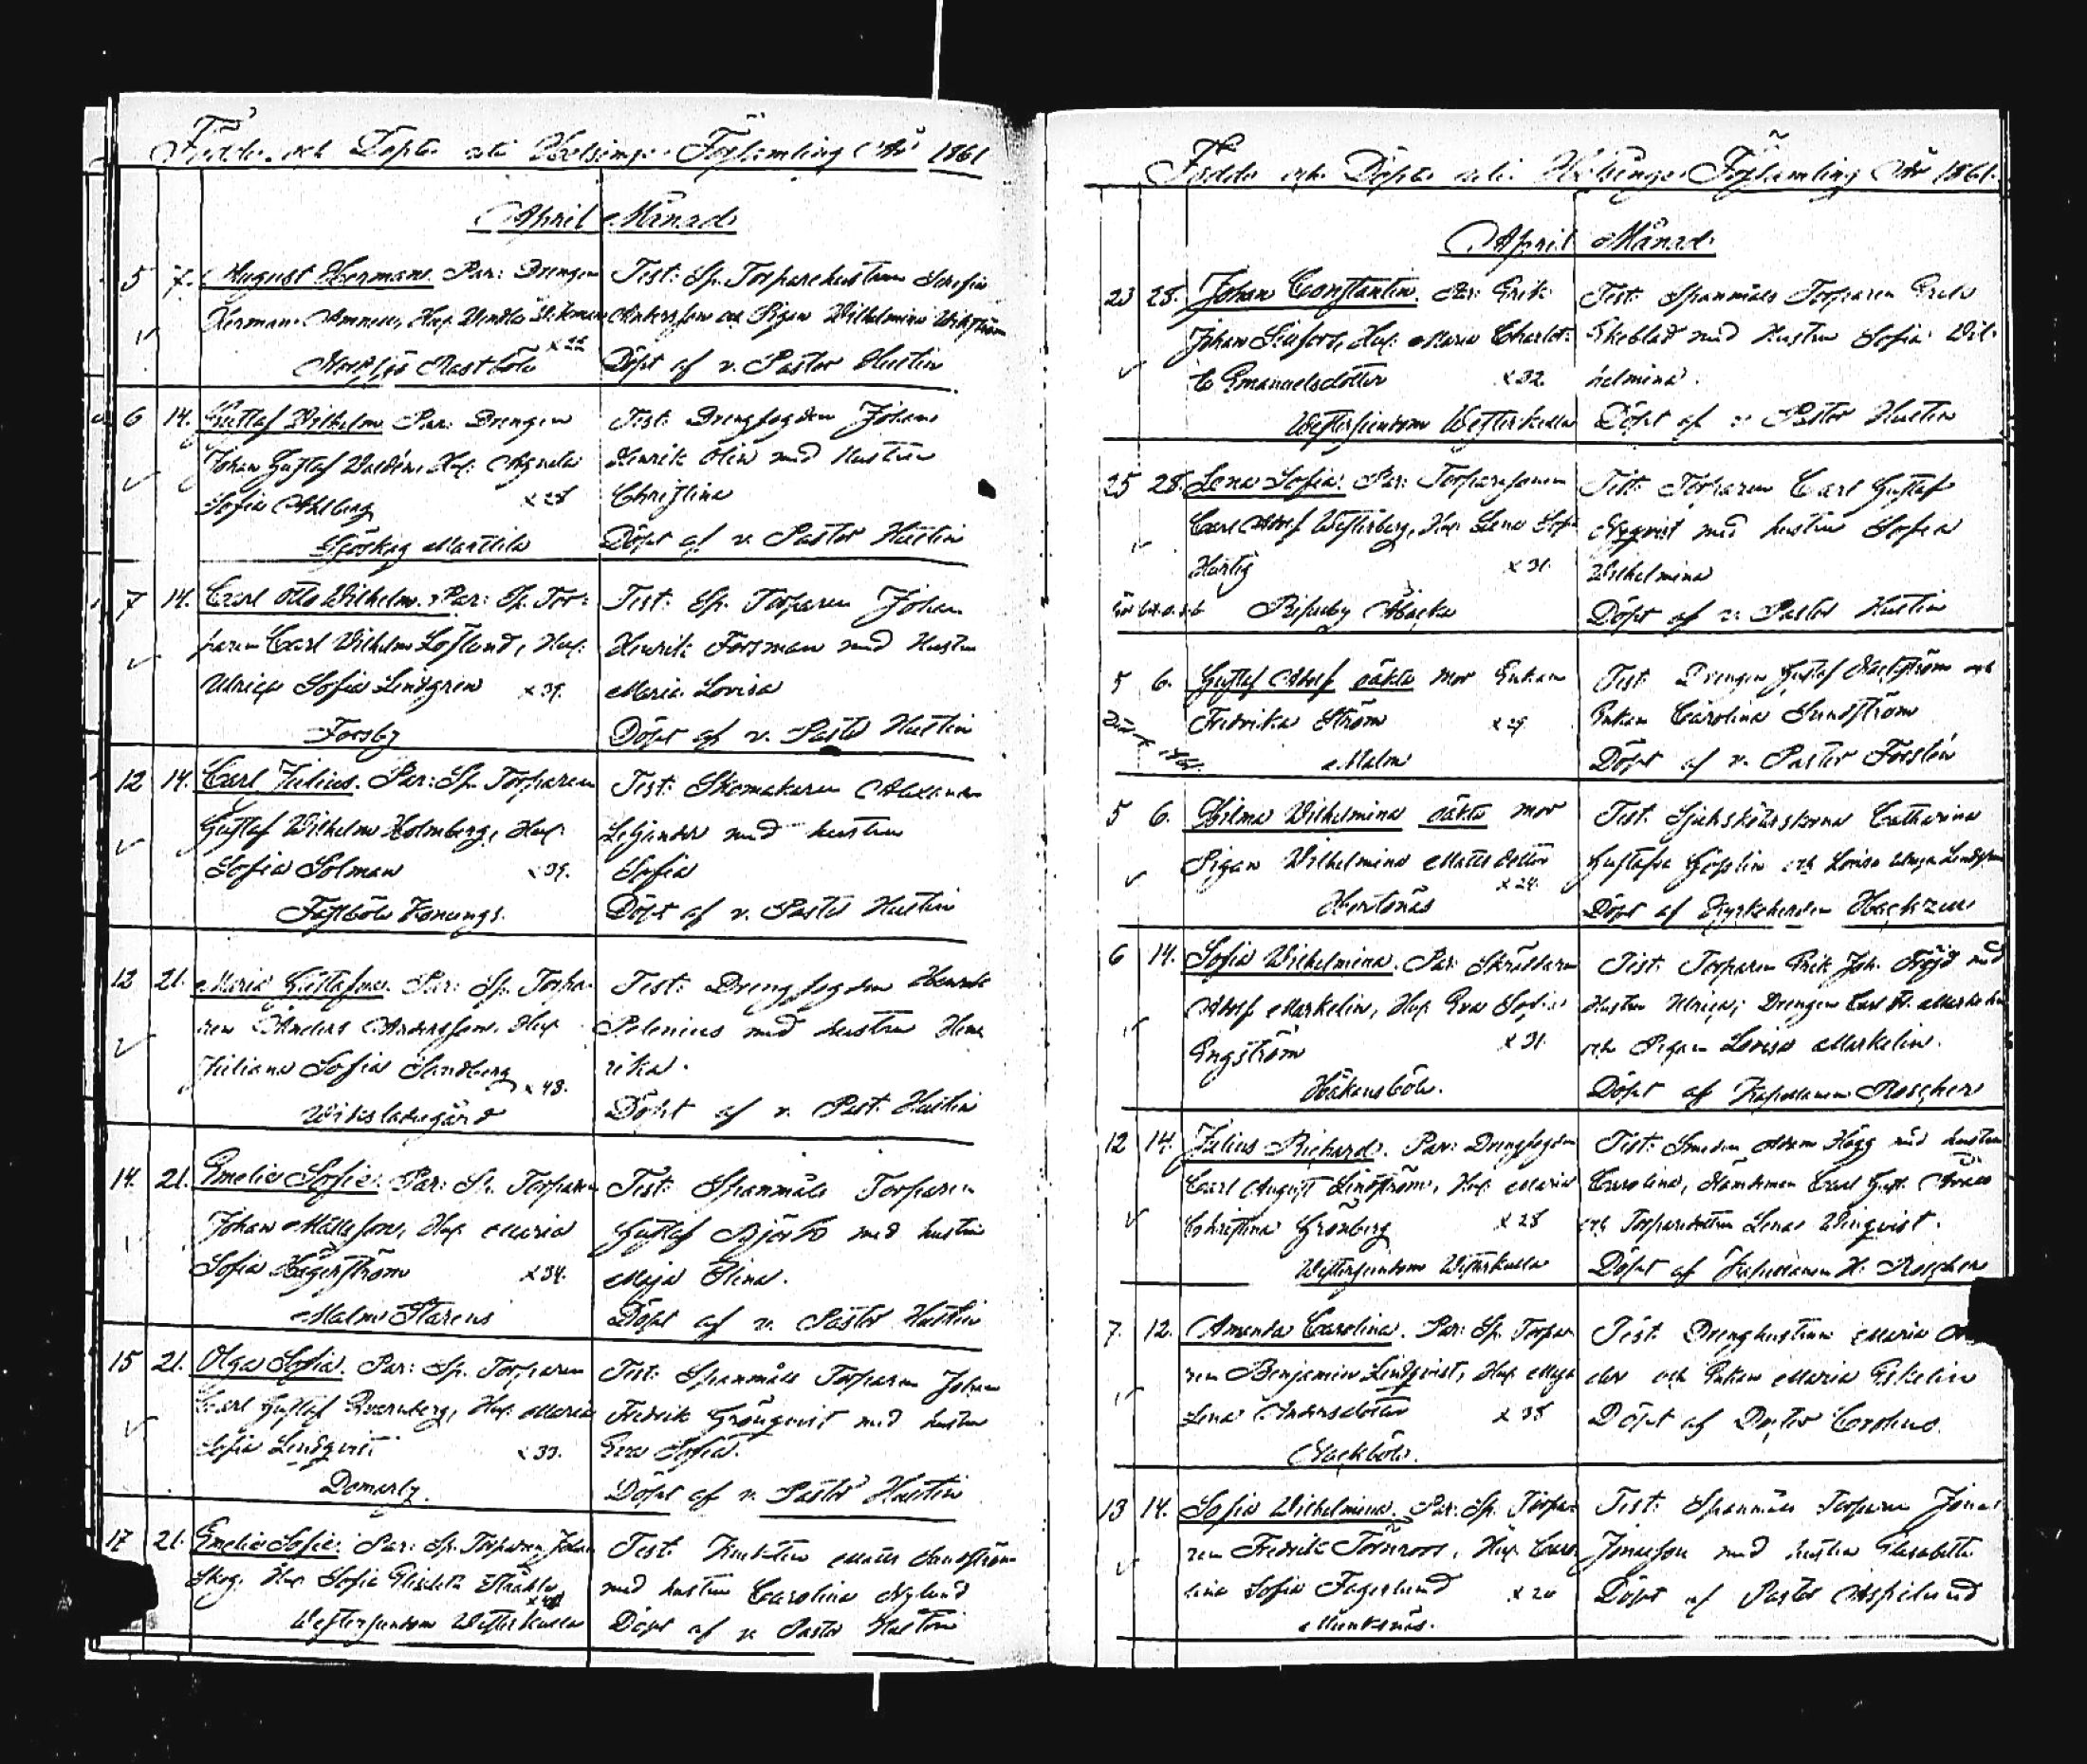 Födde och Döpte uti Helsinge Församling År 1861
April Månad
5 7. August Herman. Par: Drengen
Herman Hust. Wendla
x 22
Mastböle
Test: Sp. Torparehustrun Serafia
Andersson och Pigan Wilhelmina Wikström
Döpt af v. Pastor Hustin
6 14. Gustaf Wilhelm Par: Drengen
Johan Gustaf Waldén, Hust. Agneta
Sofia Ahlberg x 28
Mårtila
Test: Drengfogden Johan
Henrik Olin med Hustru
Christina
Döpt af v. Pastor Hustin
7 14. Carl Otto Wilhelm. Par: Sp. Tor-
paren Carl Wilhelm Löflund, Hust.
Ulrica Sofia Lindgren x 39.
Forsby
Test: Sp. Torparen Johan
Henrik Forsman med Hustru
Maria Lovisa
Döpt af v. Pastor Hustin
12 14. Carl Julius. Par: Sp. Torparen
Gustaf Wilhelm Holmberg, Hust.
Sofia Solman x 39.
Fastböle Konungs.
Test: Skomakaren Alexander
Liljander med hustru
Sofia
Döpt af v. Pastor Hustin
12 21. Maria Gustafva. Par: Sp. Torpa-
ren Anders Andersson, Hust.
Juliana Sofia Sandberg x 43.
Test: Drengfogden Henrik
Polenius med hustru Hen
rika.
Döpt af v. Past. Hustin
14. 21. Emelie Sofie. Par: Sp. Torparen
Johan Mattsson, Hust. Maria
Sofia Hägerström x 34.
Malm Starens
Test: Spanmåls Torparen
Gustaf Björk med hustru
Maja Stina.
Döpt af v. Pastor Hustin
15 21. Olga Sofia. Par: Sp. Torparen
Carl Gustaf Qvarnberg, Hust. Maria
Sofia Lindqvist x 33.
Domarby.
Test: Spanmåls Torparen Johan
Fredrik Grönqvist med hustru
Eva Sofia.
Döpt af v. Pastor Hustin
17 21. Emelie Sofie. Par: Sp. Torparen Johan
Skog, Hust. Sofia Elisabeth
Westersundom Westerkulla
Test: Matts Sandström
med hustru Carolina Nylund
Döpt af v. Pastor Hustin
Födde och Döpte uti Helsinge Församling År 1861.
April Månad
23 28. Johan Constantin. Par: Erik
Johan Hust. Maria Charlot-
ta Emanuelsdotter x 32
Westersundom Westerkulla
Test: Spanmåls Torparen Erik
Ekeblad med Hustru Sofia Wil-
helmina.
Döpt af v. Pastor Hustin
25 28. Lena Sofia. Par: Torparesonen
Carl Adolf Westerberg, Hust. Lena Sofia
Härtig x 31.
Ripuby Åbacka
Test: Torparen Carl Gustaf
Nyqvist med hustru Sofia
Wilhelmina
Döpt af v. Pastor Hustin
5 6. Gustaf Adolf oäkta Mor Enkan
Fredrika Ström x 29
Malm
Test: Drengen Gustaf och
Enkan Carolina Sundström
Döpt af v. Pastor Forstén
5 6. Hilma Wilhelmina oäkta Mor
Pigan Wilhelmina Mattsdotter
x 24.
Hertonäs
Test: Sjuksköterskorna Catharina
Gustafva och Lovisa
Döpt af Kyrkoherden Hackzell
6 14. Sofia Wilhelmina. Par: Skräddaren
Adolf Markelin, Hust. Eva Sofia
Engström x 31.
Håkansböle.
Test: Torparen Erik Joh. Fröjd med
Hustru Ulrica; Drengen Carl Markelin
och Pigan Lovisa Markelin.
Döpt af Kapellanen Roschier
12 14. Julius Richard. Par: Drengfogden
Carl August Lindström, Hust. Maria
Christina Grönberg x 28
Westersundom Westerkulla
Test: Smeden Adam Hägg med hustru
Carolina, Carl Gust.
och Torparedottren Lena Winqvist.
Döpt af Kapellanen H. Roschier
7. 12. Amanda Carolina. Par: Sp. Torpa-
ren Benjamin Lindqvist, Hust. Maja
Lena Andersdotter x 38
Nackböle.
Test: Drenghustrun Maria
och Enkan Maria Eskelin
Döpt af Doctor
13 14. Sofia Wilhelmina. Par: Sp. Torpa-
ren Fredrik Törnroos, Hust. Caro-
lina Sofia Fagerlund x 20
Munksnäs.
Test: Spanmåls Torparen Jonas
Jonasson med hustru Elisabeth
Döpt af Pastor Aspelund